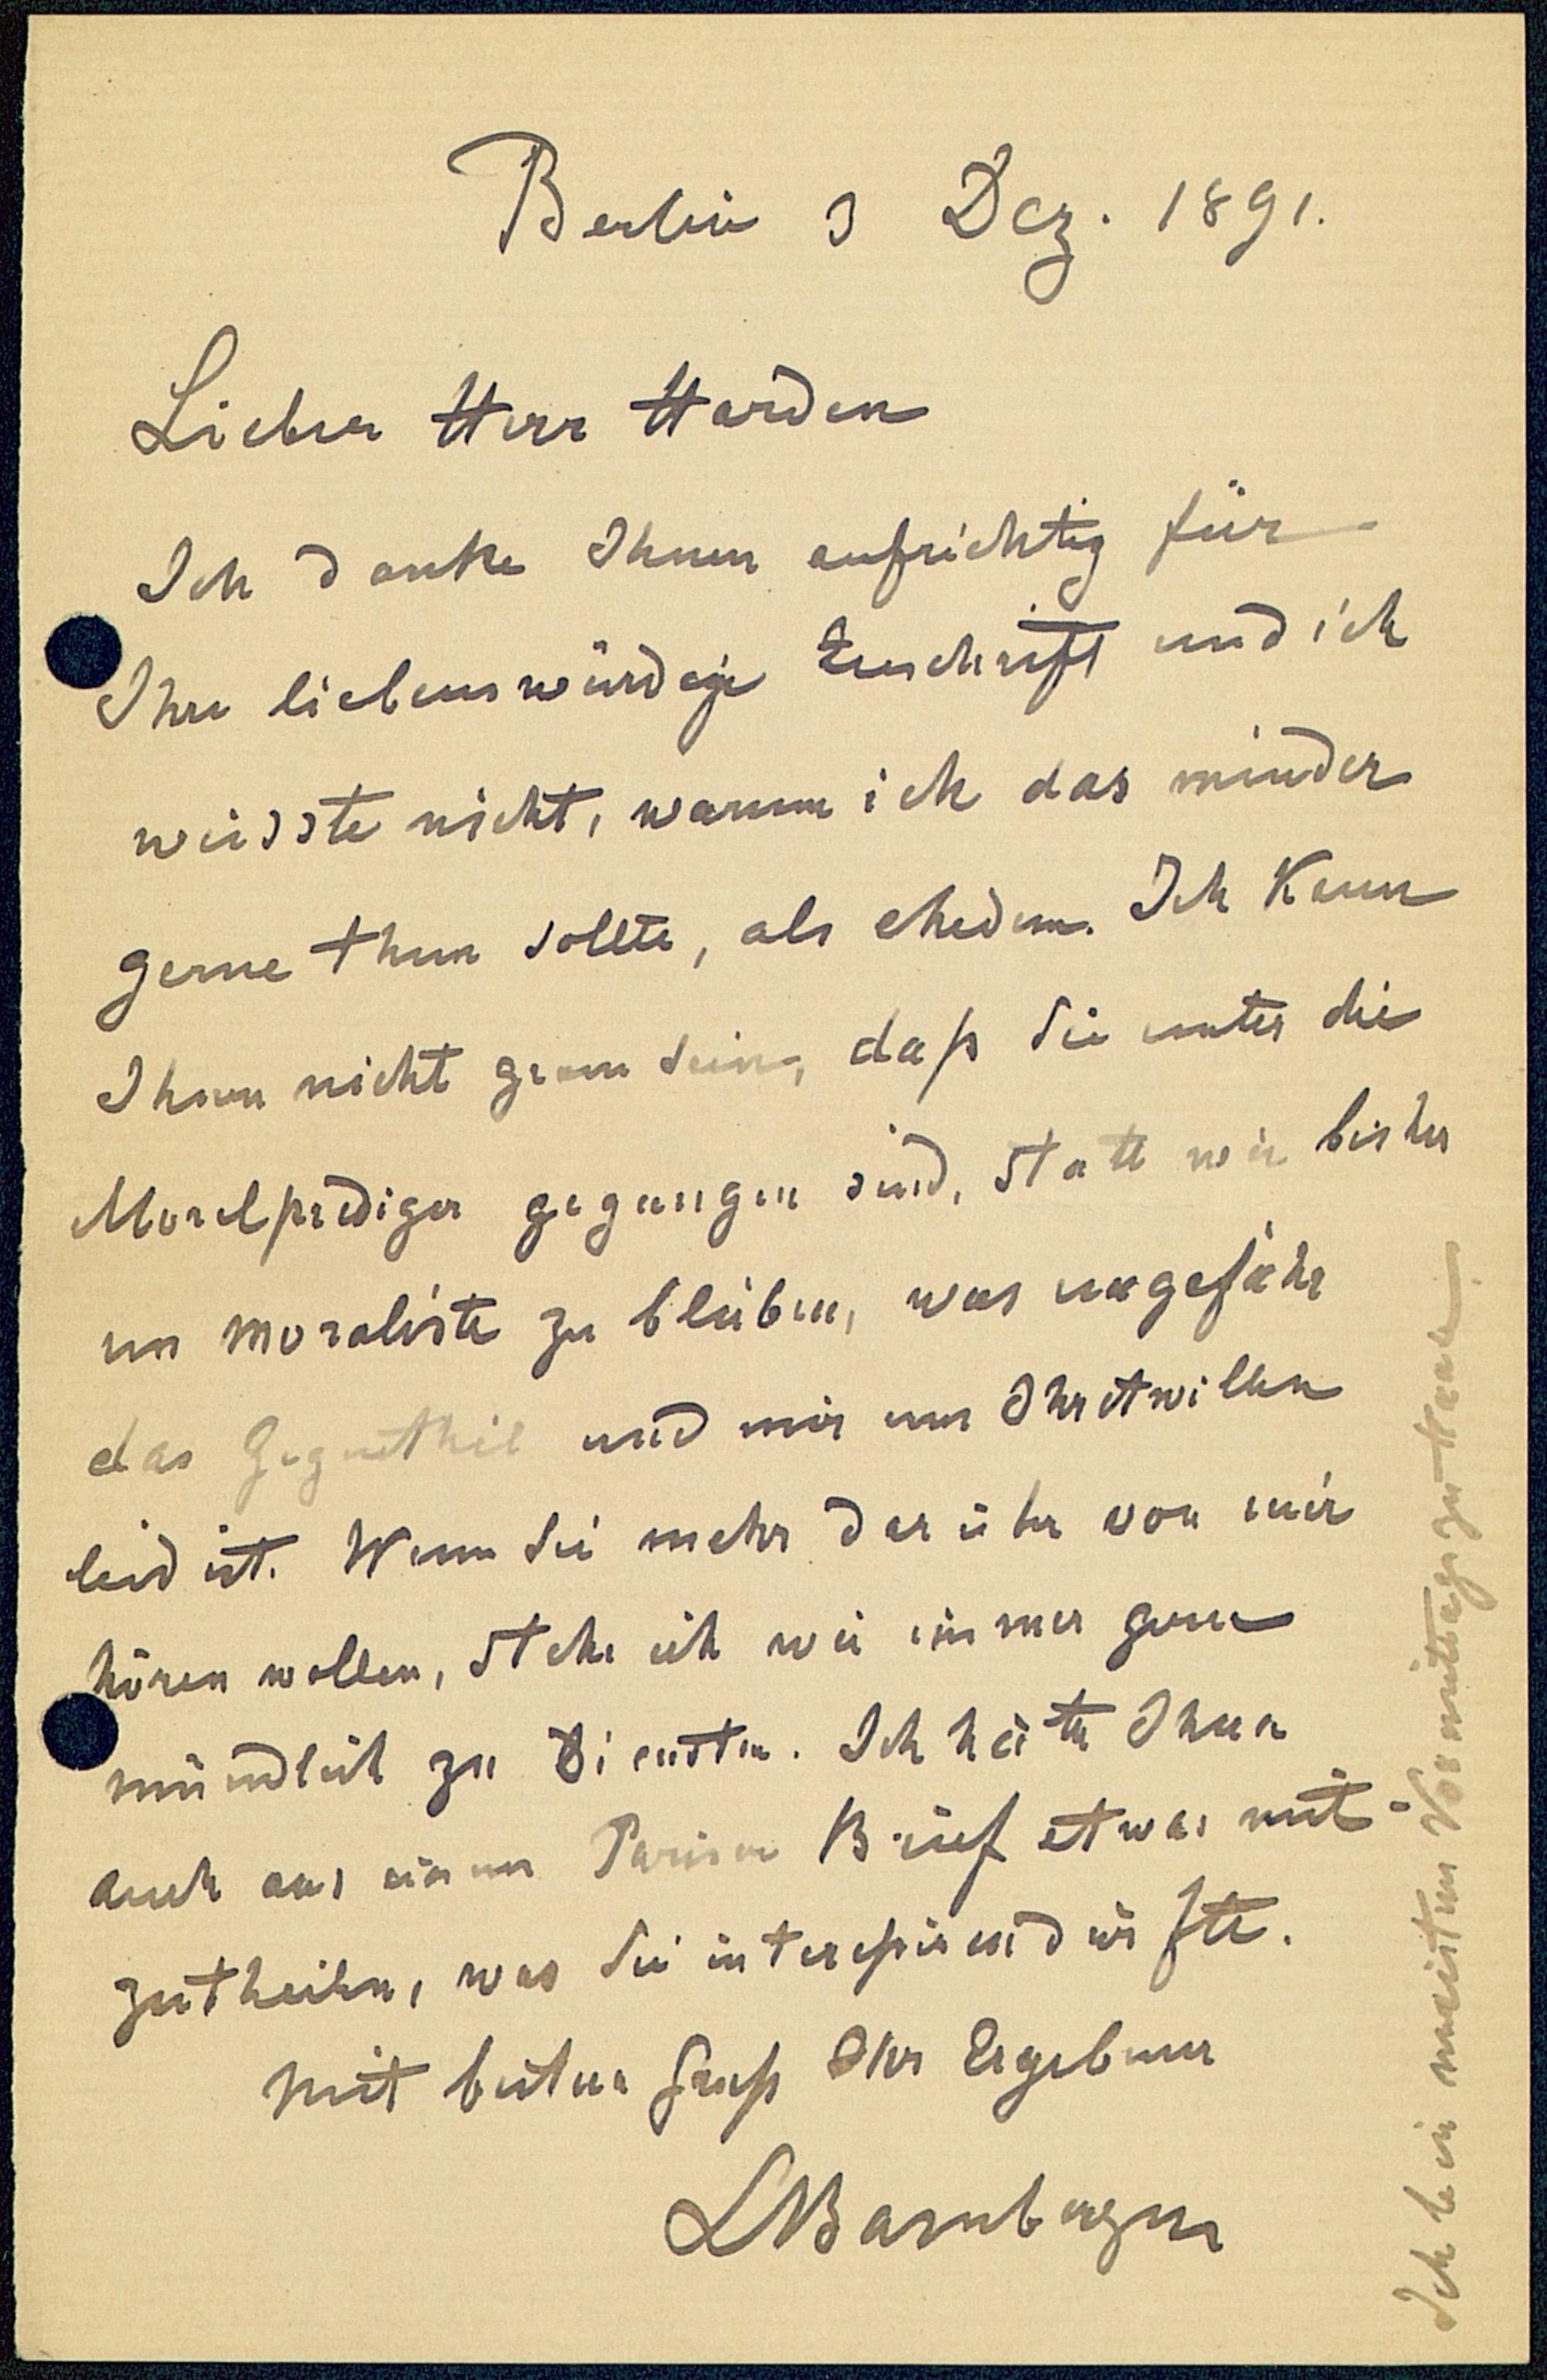 Berlin 3 Dez. 1891.
Lieber Herr Harden
Ich danke Ihnen aufrichtig für
Ihre liebenswürdige Zuschrift und ich
wüsste nicht, warum ich das minder
gerne thun sollte, als ehedem. Ich kann
Ihnen nicht gram sein, daß Sie unter die
Moralprediger gegangen sind, statt wie bisher
un moraliste zu bleiben, was ungefähr
das Gegentheil und mir um Ihretwillen
leid ist. Wenn Sie mehr darüber von mir
hören wollen, stehe ich wie immer gern
mündlich zu Diensten. Ich hätte Ihnen
auch aus einem Pariser Brief etwas mit-
zutheilen, was Sie interessiren dürfte.
Mit bestem Gruß Ihr Ergebener
LBamberger
Ich bin meistens Vormittags zu Hause